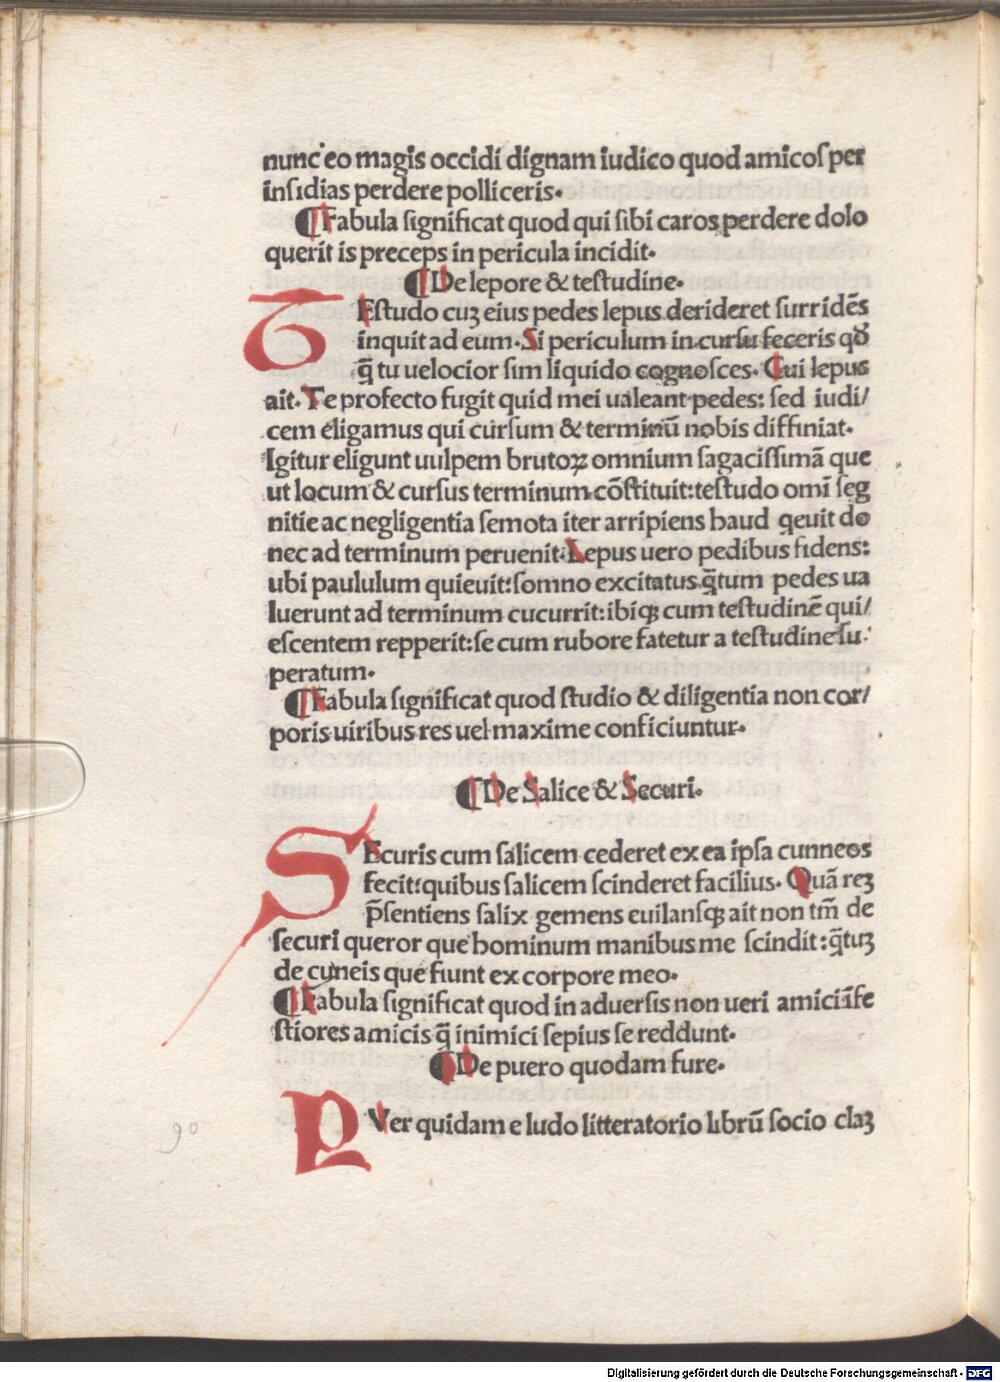 nunc eo magis occidi dignam iudico quod amicoſ per
inſidias perdere polliceris.
¶ Fabula ſignificat quod qui ſibi caros perdere dolo
querit is preceps in pericula incidit.
¶ De lepore & teſtudine.
TEſtudo cuꝫ eius pedes lepus derideret ſurridēs
inquit ad eum. Si periculum in curſu feceris qđ
q̄ tu uelocior ſim liquido cognoſces. Cui lepus
ait. Te profecto fugit quid mei ualeant pedes: ſed iudi/
cem eligamus qui curſum & terminū nobis diffiniat.
Igitur eligunt uulpem brutoꝝ omnium ſagaciſſimā que
ut locum & curſus terminum cōſtituit: teſtudo omī ſeg
nitie ac negligentia ſemota iter arripiens haud q̄euit do
nec ad terminum peruenit. Lepus uero pedibus fidens:
ubi paululum quieuit: ſomno excitatus q̄tum pedes ua
luerunt ad terminum cucurrit: ibiqꝫ cum teſtudinē qui/
eſcentem repperit: ſe cum rubore fatetur a teſtudine ſu
peratum.
¶ Fabula ſignificat quod ſtudio & diligentia non cor/
poris uiribus res uel maxime conficiuntur.
¶ De Salice & Securi.
SEcuris cum ſalicem cederet ex ea ipſa cunneos
fecit: quibus ſalicem ſcinderet facilius. Quā reꝫ
p̄ſentiens ſalix gemens euilanſqꝫ ait non tm̄ de
ſecuri queror que hominum manibus me ſcindit: q̄tuꝫ
de cuneis que fiunt ex corpore meo.
¶ Fabula ſignificat quod in aduerſis non ueri amici īfe
ſtiores amicis q̄ inimici ſepius ſe reddunt.
¶ De puero quodam fure.
PVer quidam e ludo litteratorio librū ſocio claꝫ
90
Digitalisierung gefördert durch die Deutsche Forschungsgemeinschaft - DFG